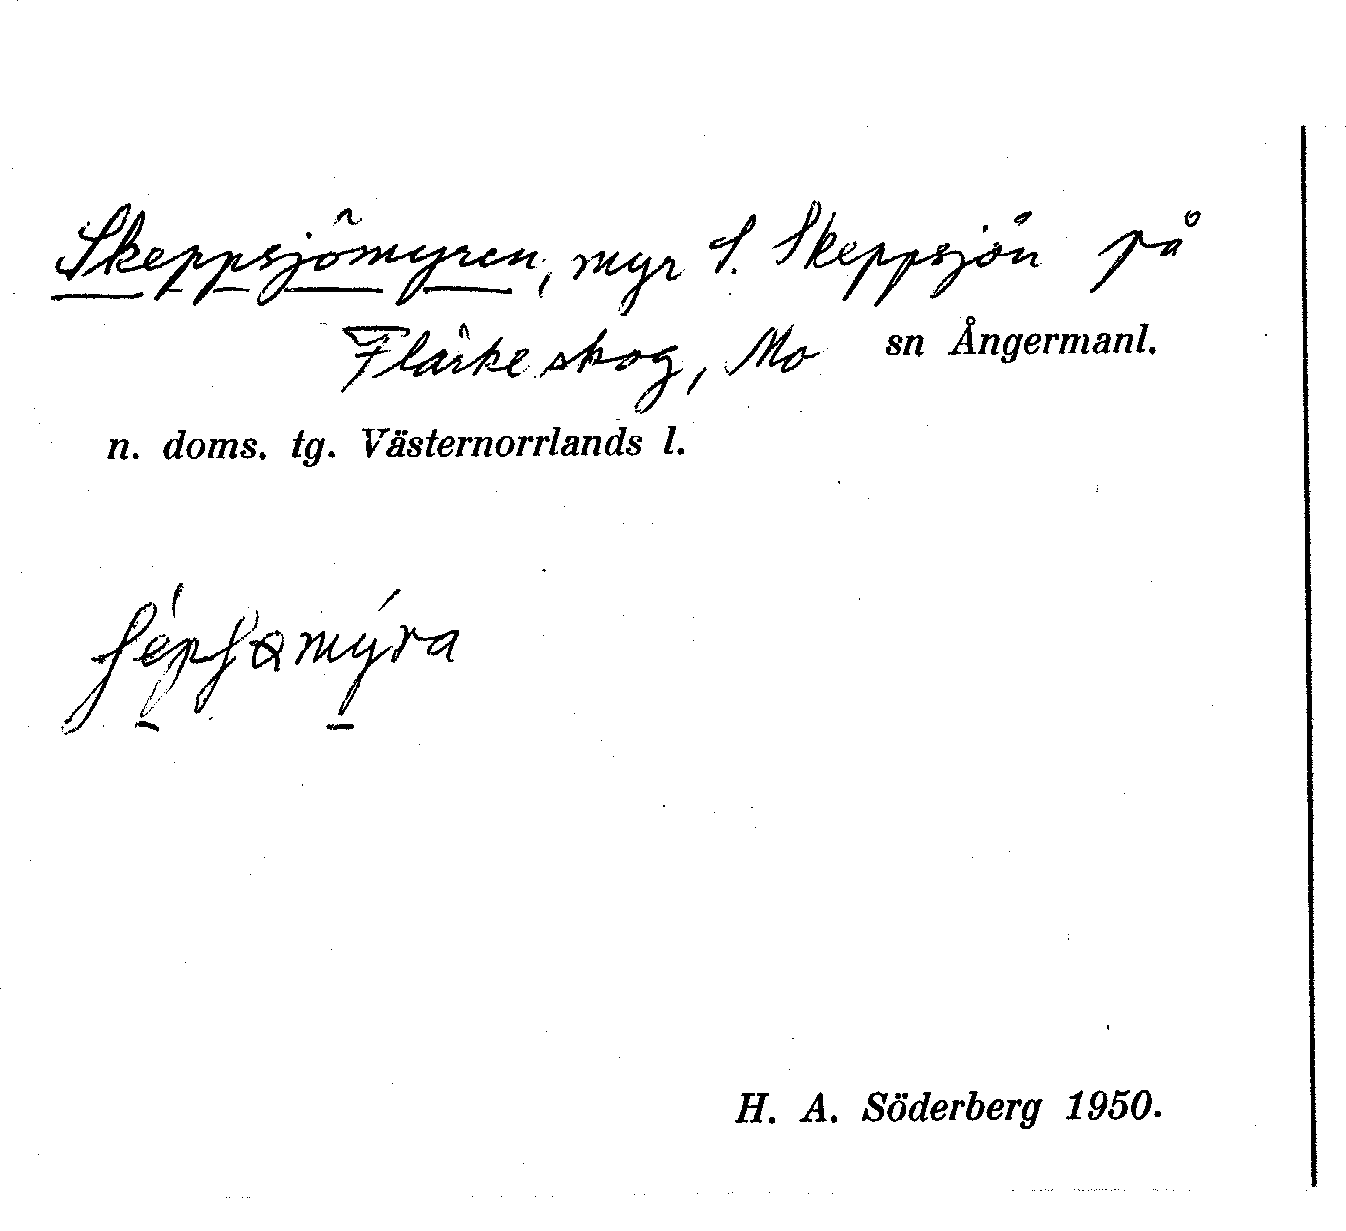 Skeppsjömyren, myr S. Skeppsjön på
Flärke skog, Mo sn Ångermanl.
n. doms. tg. Västernorrlands l.
H. A. Söderberg 1950.